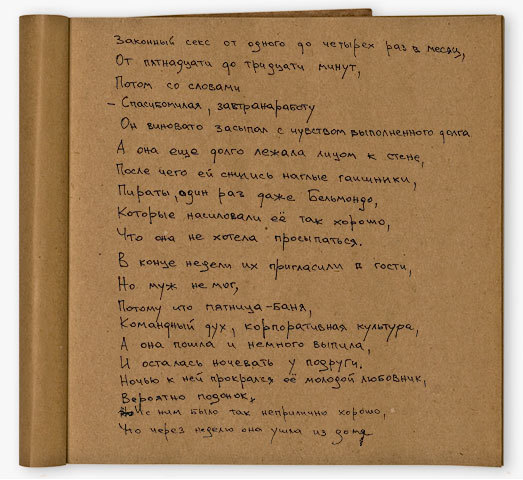 Законный секс от одного до четырех раз в месяц,
От пятнадцати до тридцати минут,
Потом со словами
- Спасибомилая, завтранаработу
Он виновато засыпал с чувством выполненного долга
А она еще долго лежала лицом к стене,
После чего ей снились наглые гаишники,
Пираты, один раз даже Бельмондо,
Которые насиловали её так хорошо,
Что она не хотела просыпаться.
В конце недели их пригласили в гости,
Но муж не мог,
Потому что пятница-баня,
Командный дух, корпоративная культура,
А она пошла и немного выпила,
И осталась ночевать у подруги.
Ночью к ней прокрался её молодой любовник,
Вероятно подонок,
с ним было так неприлично хорошо,
Что через неделю она ушла из дома